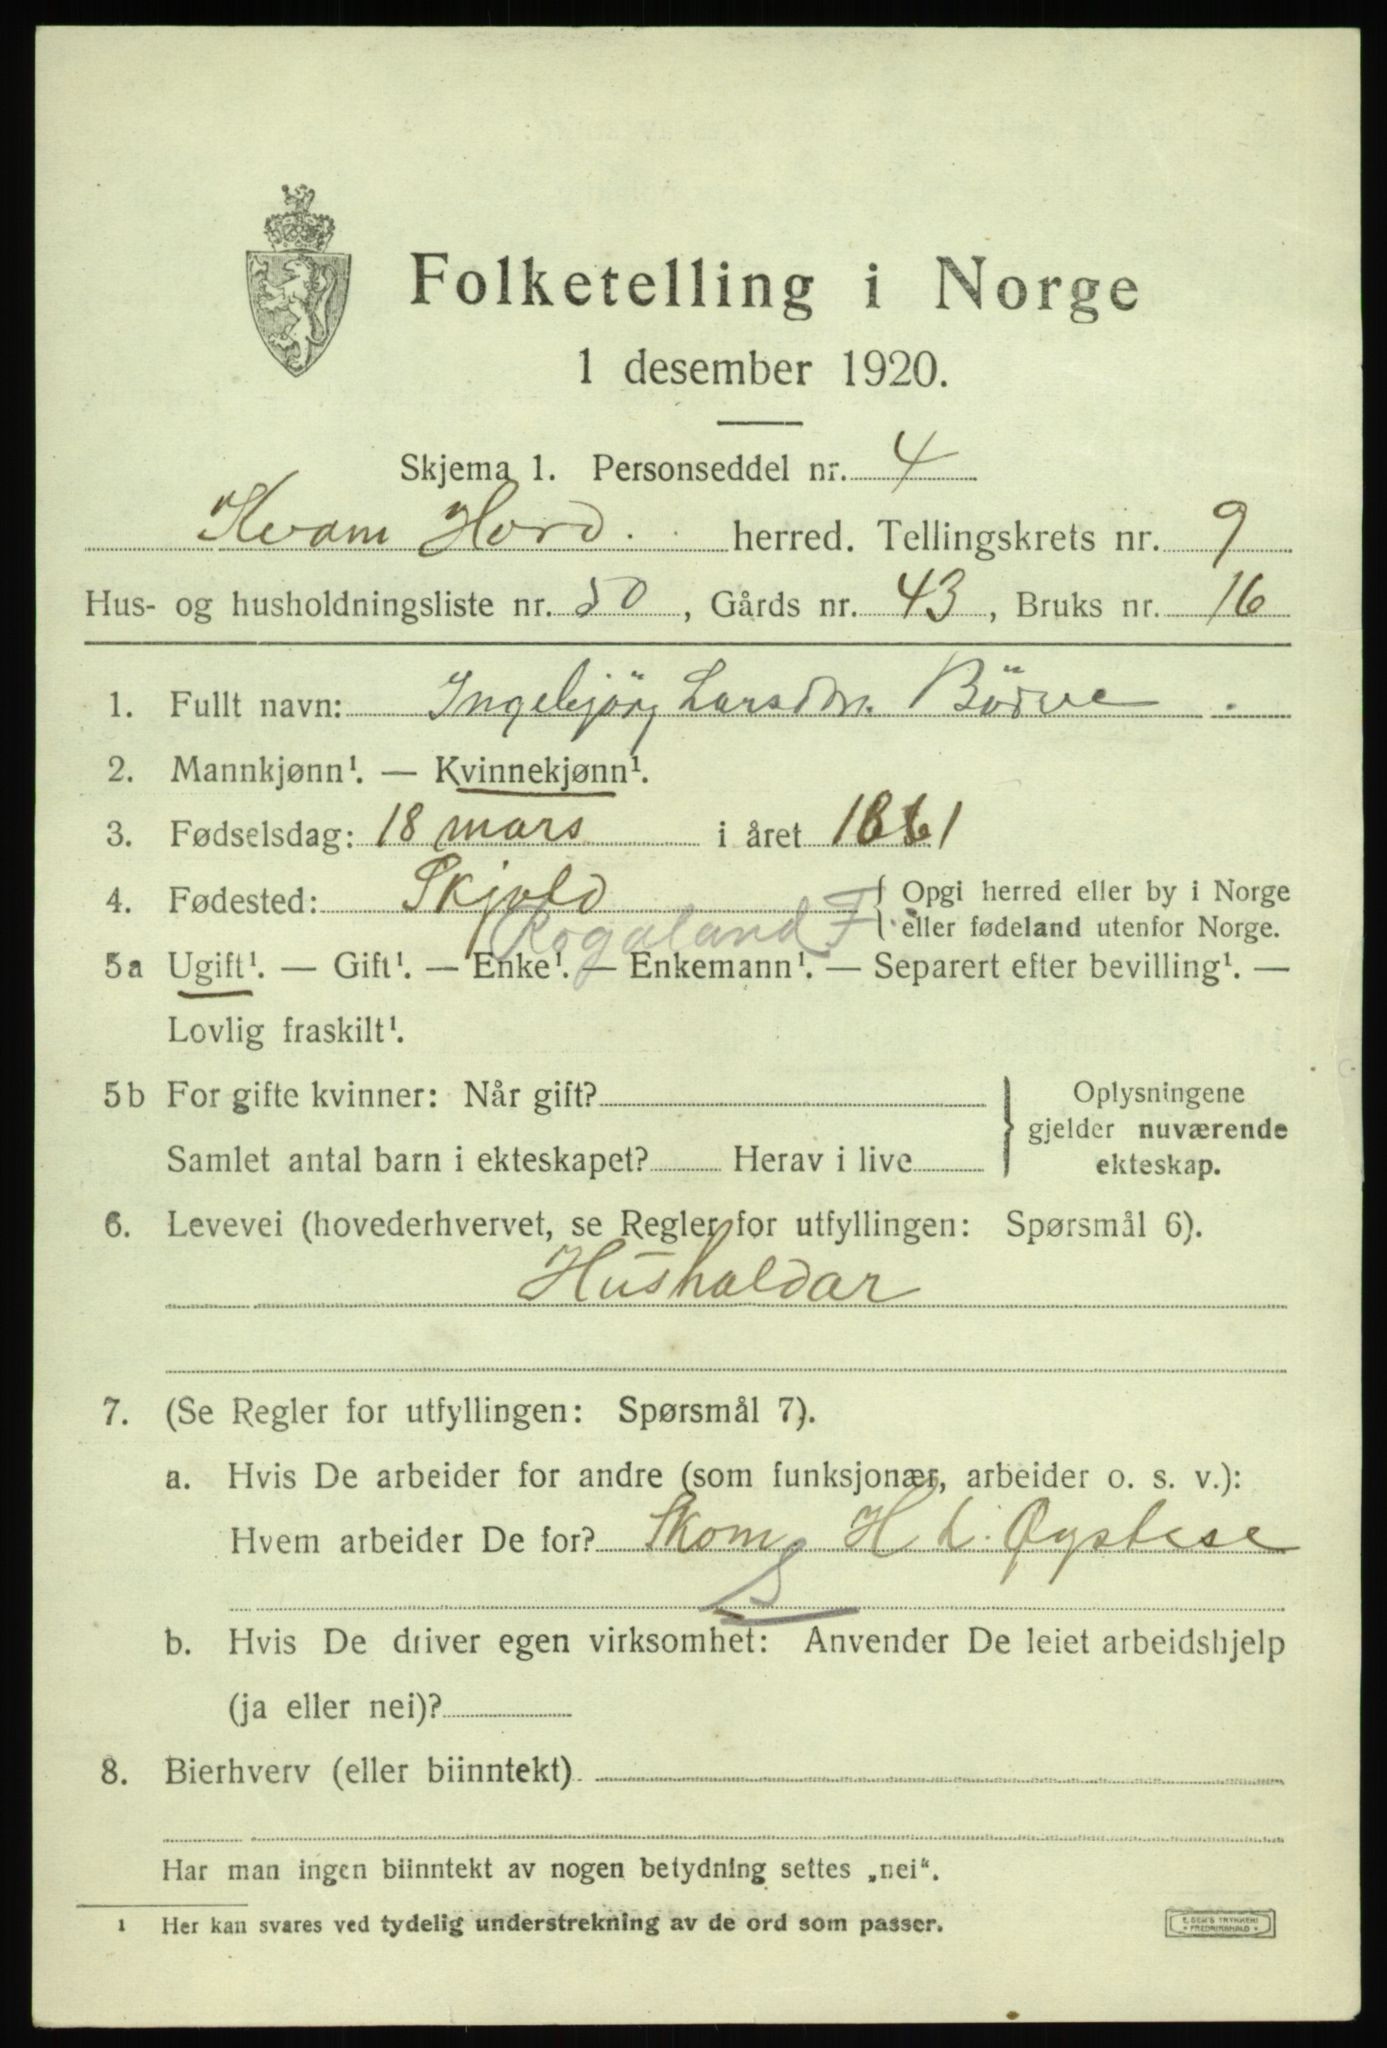 Folketelling i Norge
1 desember 1920.
Skjema 1. Personseddel nr. 4
Kvam Hord. herred. Tellingskrets nr. 9
Hus- og husholdningsliste nr. 50, Gårds nr. 43, Bruks nr. 16
1. Fullt navn: Ingebjörg Larsdtr. Börve
2. Mannkjønn¹. — Kvinnekjønn¹.
3. Fødselsdag: 18 mars i året 1861
4. Fødested: Skjold { Opgi herred eller by i Norge
Rogaland F. eller fødeland utenfor Norge.
5a Ugift¹. — Gift¹. — Enke¹. — Enkemann¹. — Separert efter bevilling¹. —
Lovlig fraskilt¹.
5b For gifte kvinner: Når gift? } Oplysningene
gjelder nuværende
Samlet antal barn i ekteskapet? Herav i live ekteskap.
6. Levevei (hovederhvervet, se Regler for utfyllingen: Spørsmål 6).
Hushaldar
7. (Se Regler for utfyllingen: Spørsmål 7).
a. Hvis De arbeider for andre (som funksjonær, arbeider o. s. v.):
Hvem arbeider De for? Skom. H L. Øystese
S
b. Hvis De driver egen virksomhet: Anvender De leiet arbeidshjelp
(ja eller nei)?
8. Bierhverv (eller biinntekt)
Har man ingen biinntekt av nogen betydning settes „nei“.
¹ Her kan svares ved tydelig understrekning av de ord som passer.
E. SEM'S TRYKKERI
* FREDRIKSHALD *